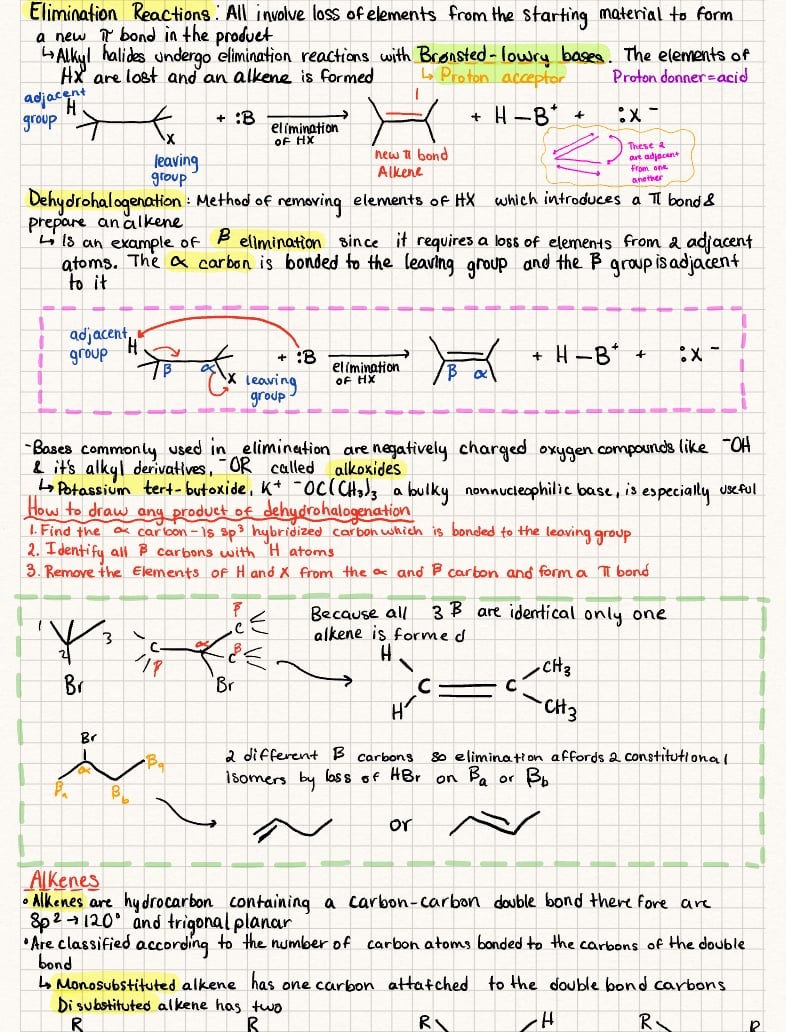 Elimination Reactions: All involve loss of elements from the starting material to form
a new π bond in the product
↳Alkyl halides undergo elimination reactions with Brønsted-lowry bases. The elements of
HX are lost and an alkene is formed ↳Proton acceptor Proton donner=acid
adjacent
group
H
X
leaving
group
+ :B
elimination
OF HX
new π bond
Alkene
+ H—B⁺ + :X⁻
These 2
are adjacent
from one
another
Dehydrohalogenation: Method of removing elements of HX which introduces a π bond &
prepare an alkene
↳ Is an example of β elimination since it requires a loss of elements from 2 adjacent
atoms. The α carbon is bonded to the leaving group and the β group is adjacent
to it
adjacent
group
H
β α
X leaving
group
+ :B
elimination
OF HX
β α
+ H—B⁺ + :X⁻
-Bases commonly used in elimination are negatively charged oxygen compounds like ⁻OH
& it's alkyl derivatives, ⁻OR called alkoxides
↳Potassium tert-butoxide, K⁺ ⁻OC(CH₃)₃ a bulky nonnucleophilic base, is especially useful
How to draw any product of dehydrohalogenation
1. Find the α carbon - Is sp³ hybridized carbon which is bonded to the leaving group
2. Identify all β carbons with H atoms
3. Remove the Elements of H and X from the α and β carbon and form a π bond
1 2 3
Br
C β
α
β C
β C
Br
Because all 3 β are identical only one
alkene is formed
H
H
C C
CH₃
CH₃
Br
α
βₐ
β_b
βₐ
2 different β carbons so elimination affords 2 constitutional
isomers by loss of HBr on βₐ or β_b
or
Alkenes
•Alkenes are hydrocarbon containing a carbon-carbon double bond there fore are
sp²→120° and trigonal planar
•Are classified according to the number of carbon atoms bonded to the carbons of the double
bond
↳Monosubstituted alkene has one carbon attatched to the double bond carbons
Disubstituted alkene has two
R R R H R R